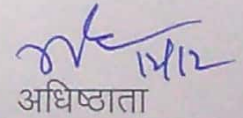 12/12
अधिष्ठाता